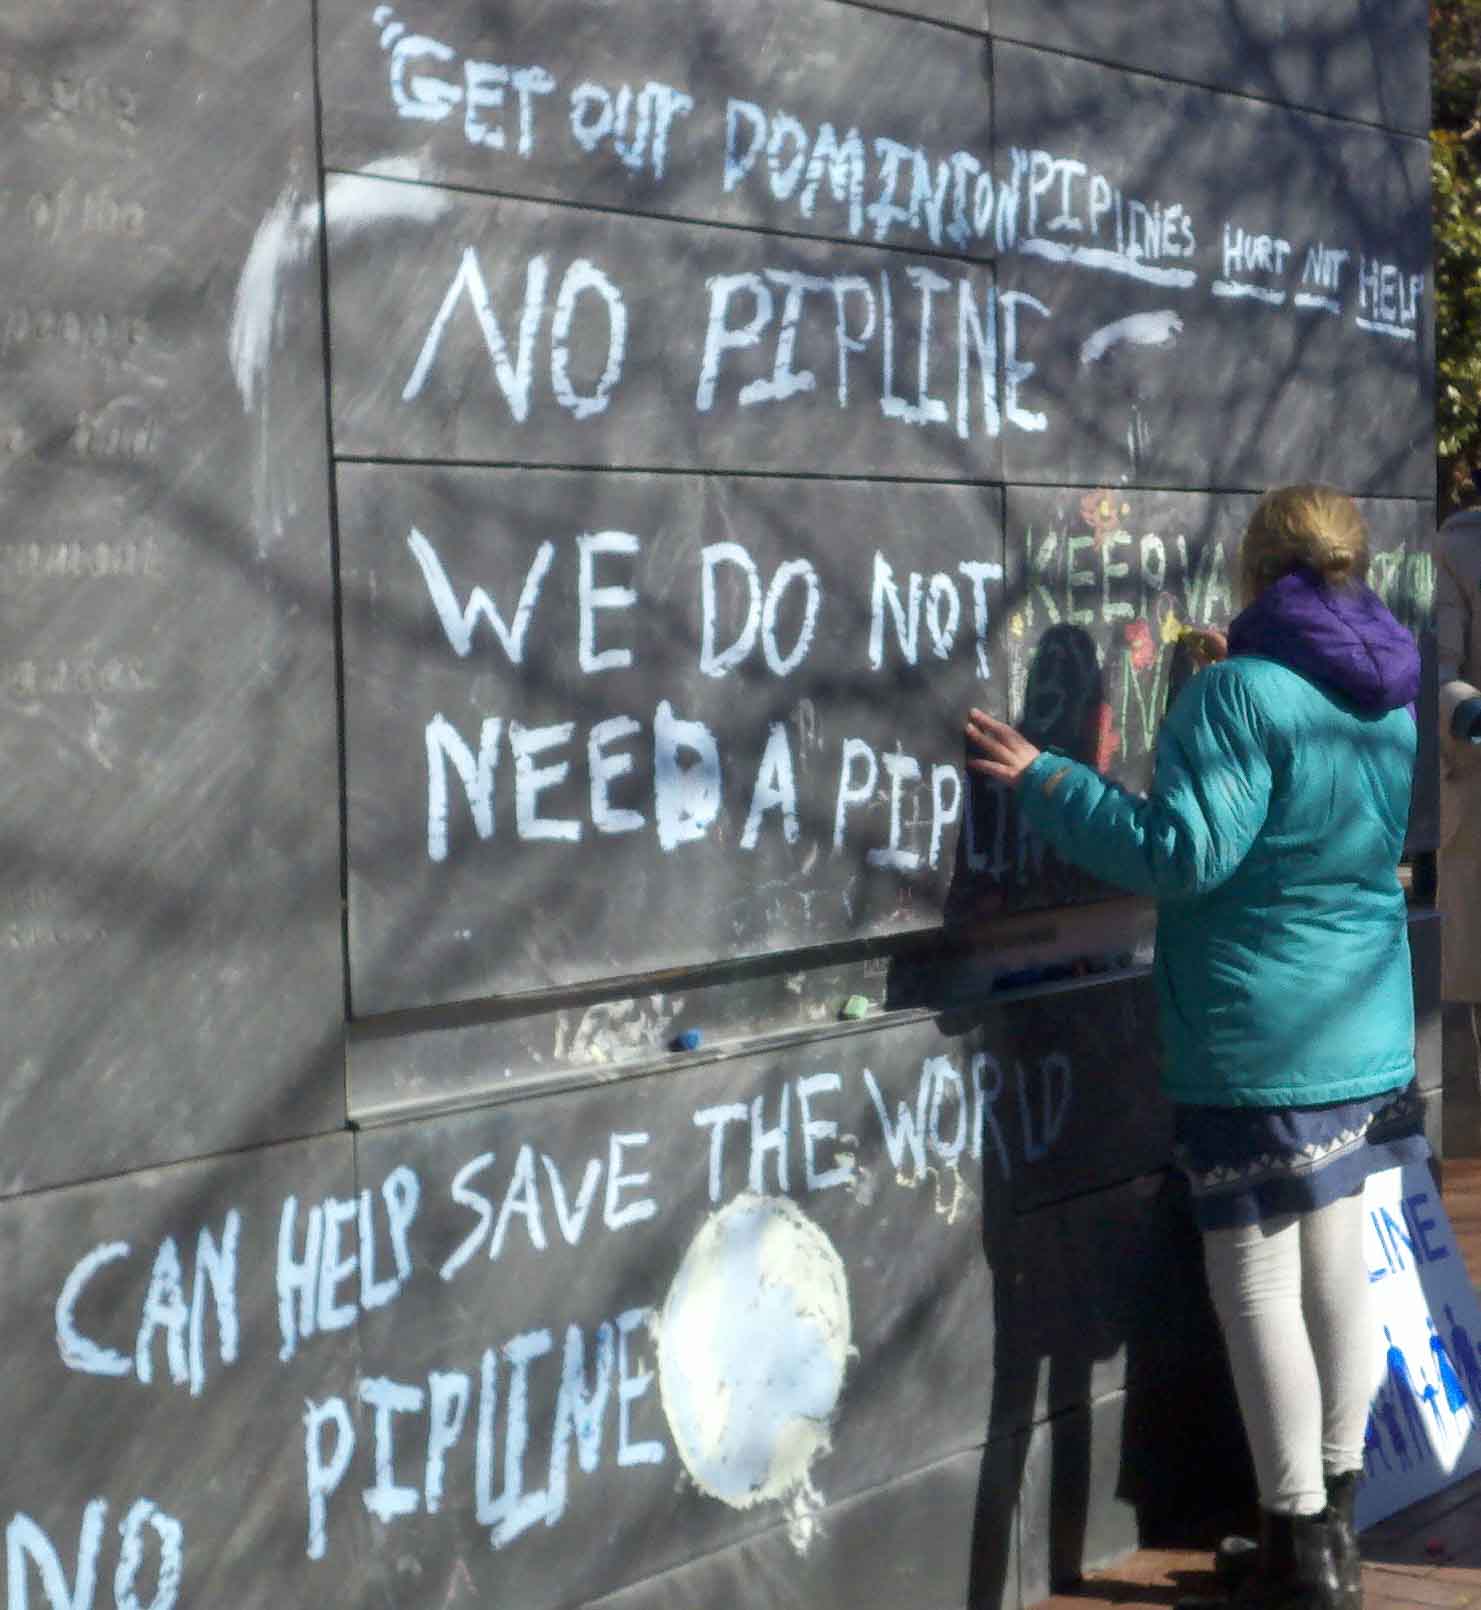 "GET OUT DOMINION" PIPLINES HURT NOT HELP
NO PIPLINE
WE DO NOT
NEED A PIPLIN
KEEP VA
BY N
CAN HELP SAVE THE WORLD
PIPLINE
NO
LINE